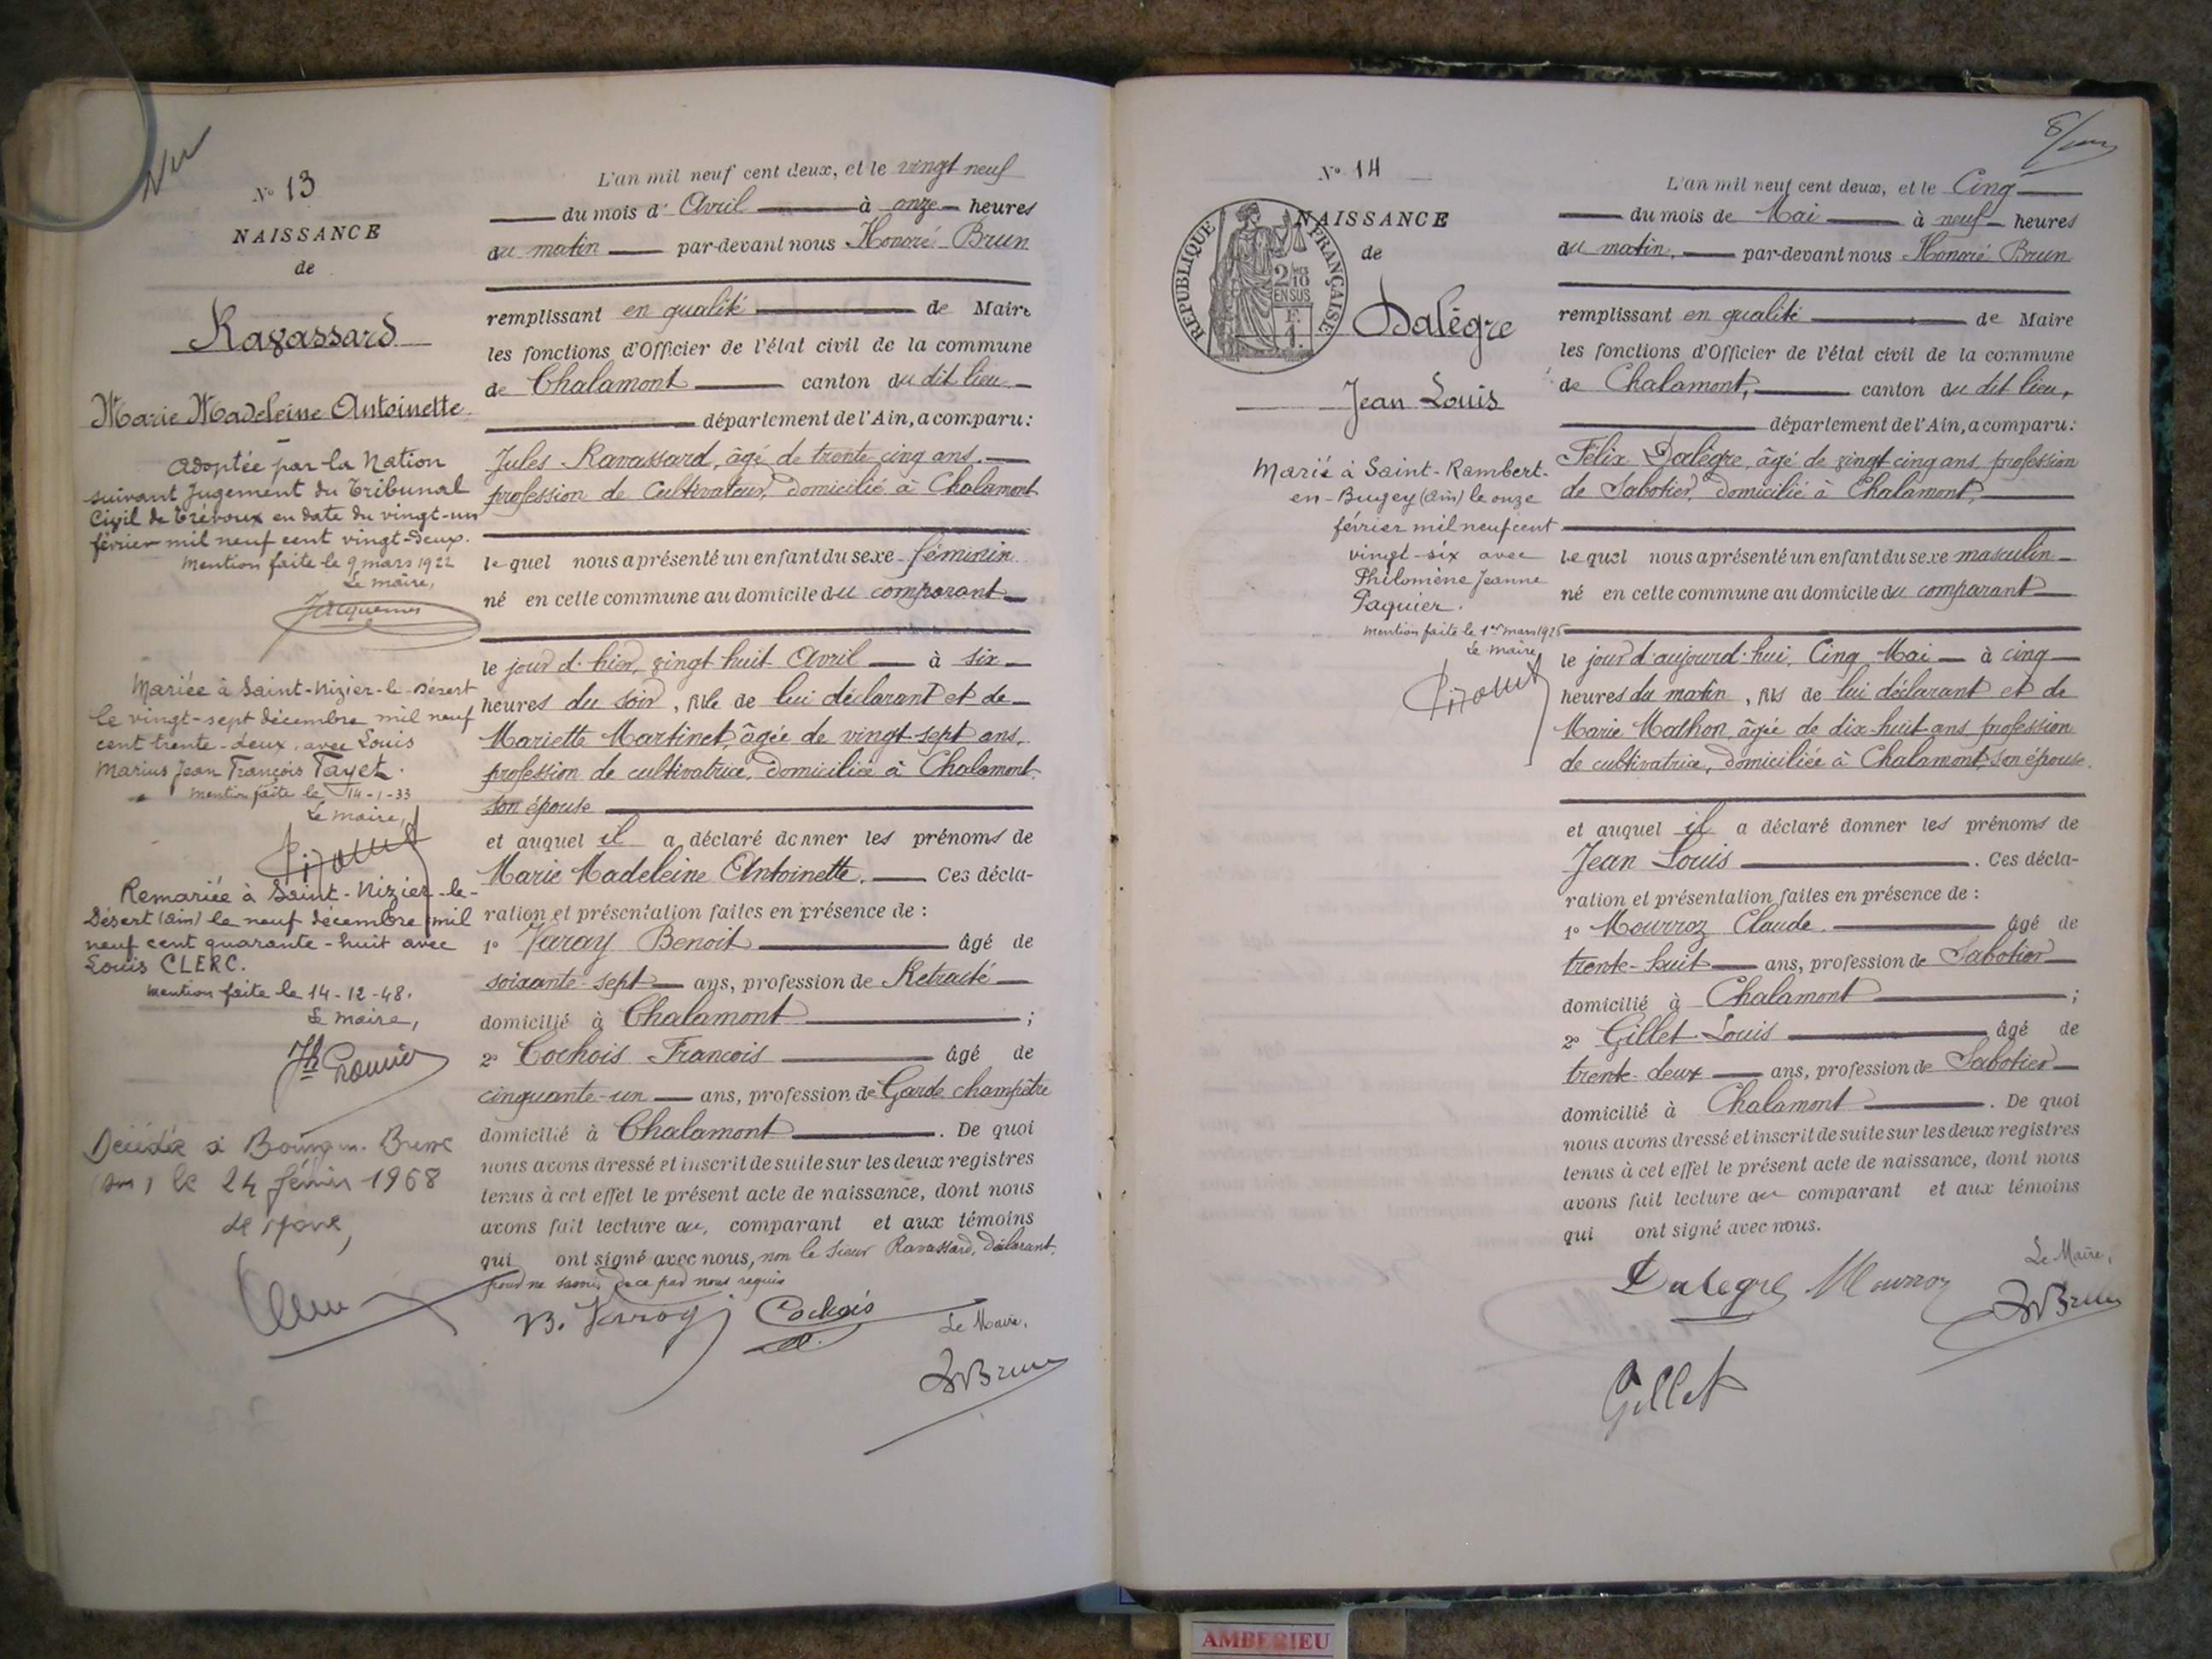 N° 13
NAISSANCE
de
Ravassard
Marie Madeleine Antoinette
Adoptée par la Nation
suivant Jugement du Tribunal
Civil de Trévoux en date du vingt-un
février mil neuf cent vingt-deux.
Mention faite le 9 mars 1922
Le maire,
Mariée à Saint-Nizier-le-Désert
le vingt-sept décembre mil neuf
cent trente-deux, avec Louis
Marius Jean François Tayet.
Mention faite le 14-1-33
Le maire,
Remariée à Saint-Nizier-le-
Désert (Ain) le neuf décembre mil
neuf cent quarante-huit avec
Louis CLERC.
Mention faite le 14-12-48.
Le maire,
Décédée à Bourg en Bresse
(Ain) le 24 février 1968
Le Maire,
L'an mil neuf cent deux, et le vingt neuf
du mois d' Avril à onze heures
du matin par-devant nous Honoré Brun
remplissant en qualité de Maire
les fonctions d'Officier de l'état civil de la commune
de Chalamont canton du dit lieu
département de l'Ain, a comparu:
Jules Ravassard, âgé de trente cinq ans.
profession de Cultivateur, domicilié à Chalamont
lequel nous a présenté un enfant du sexe féminin
né en cette commune au domicile du comparant
le jour d'hier, vingt huit Avril à six
heures du soir, fille de lui déclarant et de
Mariette Martinet, âgée de vingt-sept ans,
profession de cultivatrice, domiciliée à Chalamont
son épouse
et auquel il a déclaré donner les prénoms de
Marie Madeleine Antoinette. Ces décla-
ration et présentation faites en présence de :
1° Varay Benoit âgé de
soixante-sept ans, profession de Retraité
domicilié à Chalamont ;
2° Cochois François âgé de
cinquante-un ans, profession de Garde champêtre
domicilié à Chalamont. De quoi
nous avons dressé et inscrit de suite sur les deux registres
tenus à cet effet le présent acte de naissance, dont nous
avons fait lecture au comparant et aux témoins
qui ont signé avec nous, non le sieur Ravassard, déclarant,
pour ne savoir, de ce par nous requis
B. Varay Cochois
Le Maire,
H Brun
N° 14
NAISSANCE
de
RÉPUBLIQUE FRANÇAISE
2/10
EN SUS
F.
1.
Dalègre
Jean Louis
Marié à Saint-Rambert-
en-Bugey (Ain) le onze
février mil neuf cent
vingt-six avec
Philomène Jeanne
Paquier.
Mention faite le 1er mars 1926
Le maire,
L'an mil neuf cent deux, et le Cinq
du mois de Mai à neuf heures
du matin, par-devant nous Honoré Brun
remplissant en qualité de Maire
les fonctions d'Officier de l'état civil de la commune
de Chalamont, canton du dit lieu,
département de l'Ain, a comparu:
Félix Dalègre, âgé de vingt cinq ans, profession
de Sabotier, domicilié à Chalamont,
lequel nous a présenté un enfant du sexe masculin
né en cette commune au domicile du comparant
le jour d'aujourd'hui, Cinq Mai à cinq
heures du matin, fils de lui déclarant et de
Marie Mathon, âgée de dix-huit ans, profession
de cultivatrice, domiciliée à Chalamont, son épouse.
et auquel il a déclaré donner les prénoms de
Jean Louis. Ces décla-
ration et présentation faites en présence de :
1° Mourroz Claude. âgé de
trente-huit ans, profession de Sabotier
domicilié à Chalamont ;
2° Gillet Louis âgé de
trente-deux ans, profession de Sabotier
domicilié à Chalamont. De quoi
nous avons dressé et inscrit de suite sur les deux registres
tenus à cet effet le présent acte de naissance, dont nous
avons fait lecture au comparant et aux témoins
qui ont signé avec nous.
Dalegre Mourroz
Le Maire,
H Brun
Gillet
AMBERIEU